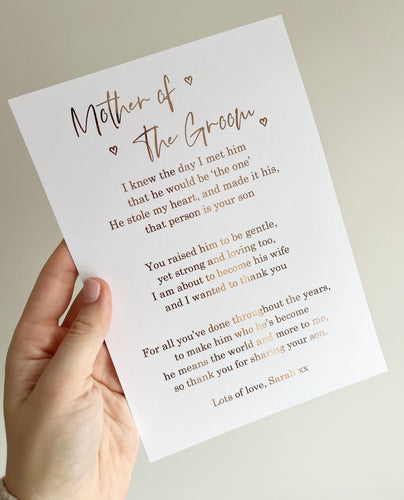 Mother of
The Groom
I knew the day I met him
that he would be 'the one'
He stole my heart, and made it his,
that person is your son
You raised him to be gentle,
yet strong and loving too,
I am about to become his wife
and I wanted to thank you
For all you've done throughout the years,
to make him who he's become
he means the world and more to me,
so thank you for sharing your son.
Lots of love, Sarah xx